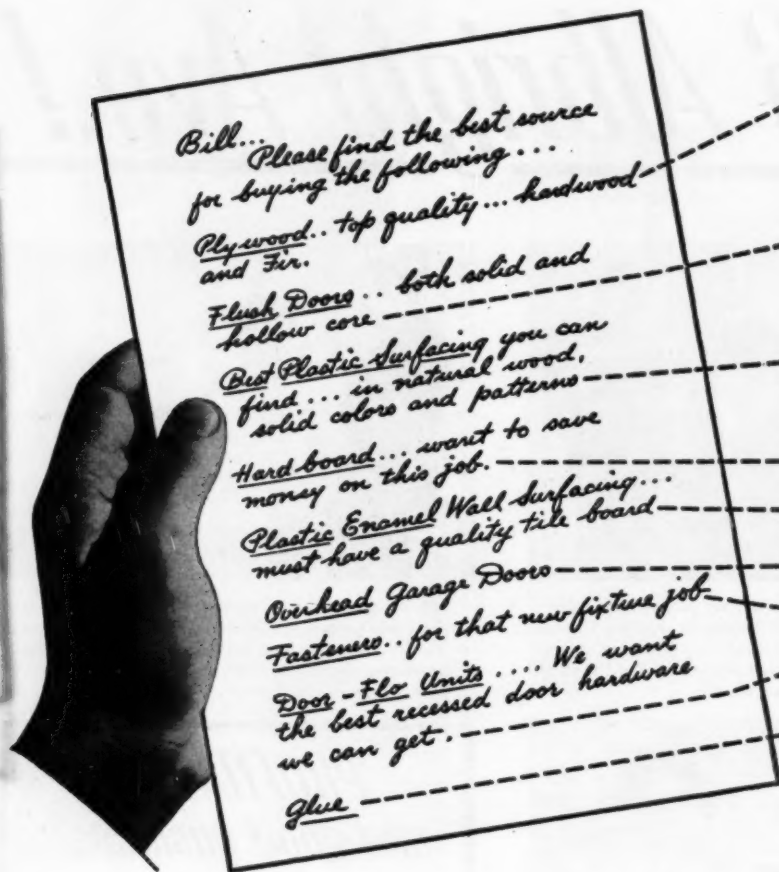 Bill...
Please find the best source
for buying the following...
Plywood.. top quality... hardwood
and Fir.
Flush Doors.. both solid and
hollow core
Best Plastic Surfacing you can
find... in natural wood,
solid colors and patterns
Hard board... want to save
money on this job.
Plastic Enamel Wall Surfacing...
must have a quality tile board
Overhead Garage Doors
Fasteners.. for that new fixture job
Door-Flo Units.... We want
the best recessed door hardware
we can get.
Glue